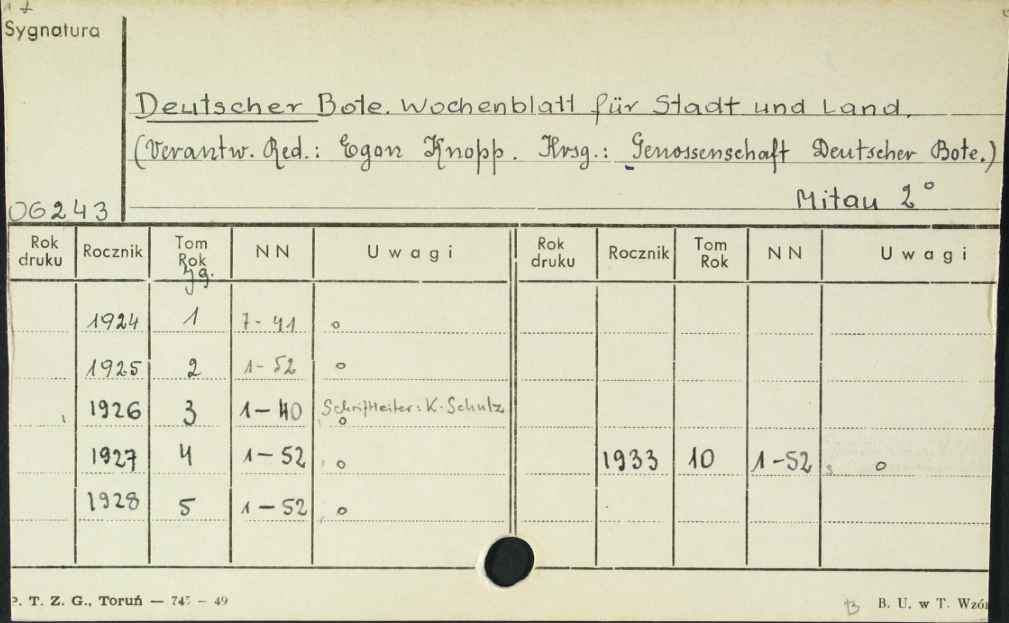 Sygnatura
Deutscher Bote. Wochenblatt für Stadt und Land.
(Verantw. Red.: Egon Knopp. Hrsg.: Genossenschaft Deutscher Bote.)
06243 Mitau 2°
Rok druku Rocznik Tom Rok Jg. NN Uwagi Rok druku Rocznik Tom Rok NN Uwagi
1924 1 7-41 o
1925 2 1-52 o
1926 3 1-40 Schriftleiter: K. Schulz o
1927 4 1-52 o 1933 10 1-52 o
1928 5 1-52 o
P. T. Z. G., Toruń — 745 — 49 B. U. w T. Wzór